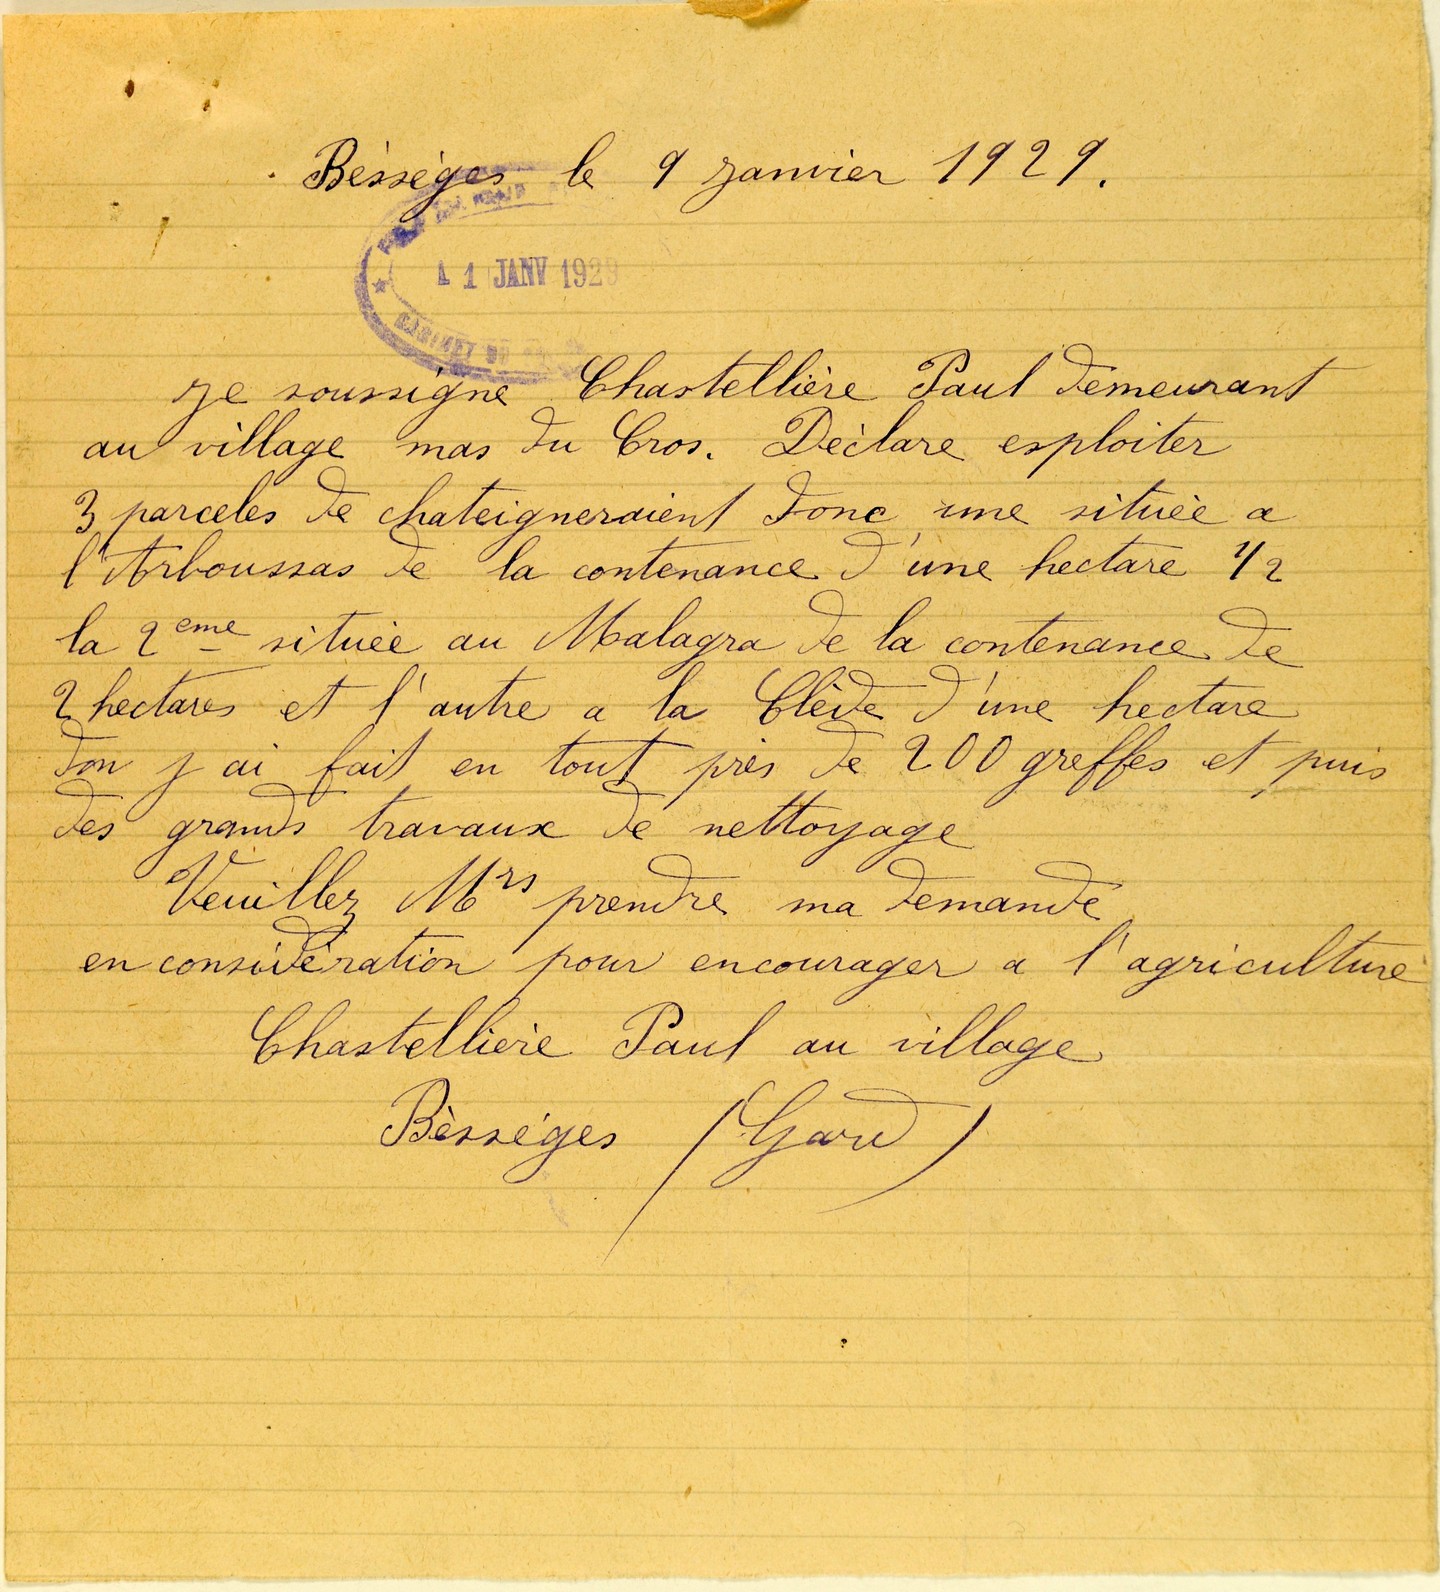 Bèssèges le 9 Janvier 1929.
11 JANV 1929
CABINET DU
Je soussigné Chastellière Paul demeurant
au village mas du Cros. Déclare esploiter
3 parceles de chateigneraient donc une situèe a
l'Arboussas de la contenance d'une hectare 1/2
la 2eme situèe au Malagra de la contenance de
2 hectares et l'autre a la Clède d'une hectare
don j ai fait en tout près de 200 greffes et puis
des grands travaux de nettoyage
Veuillez Mrs prendre ma demande
en considération pour encourager a l'agriculture
Chastellière Paul au village
Bèssèges (Gard)